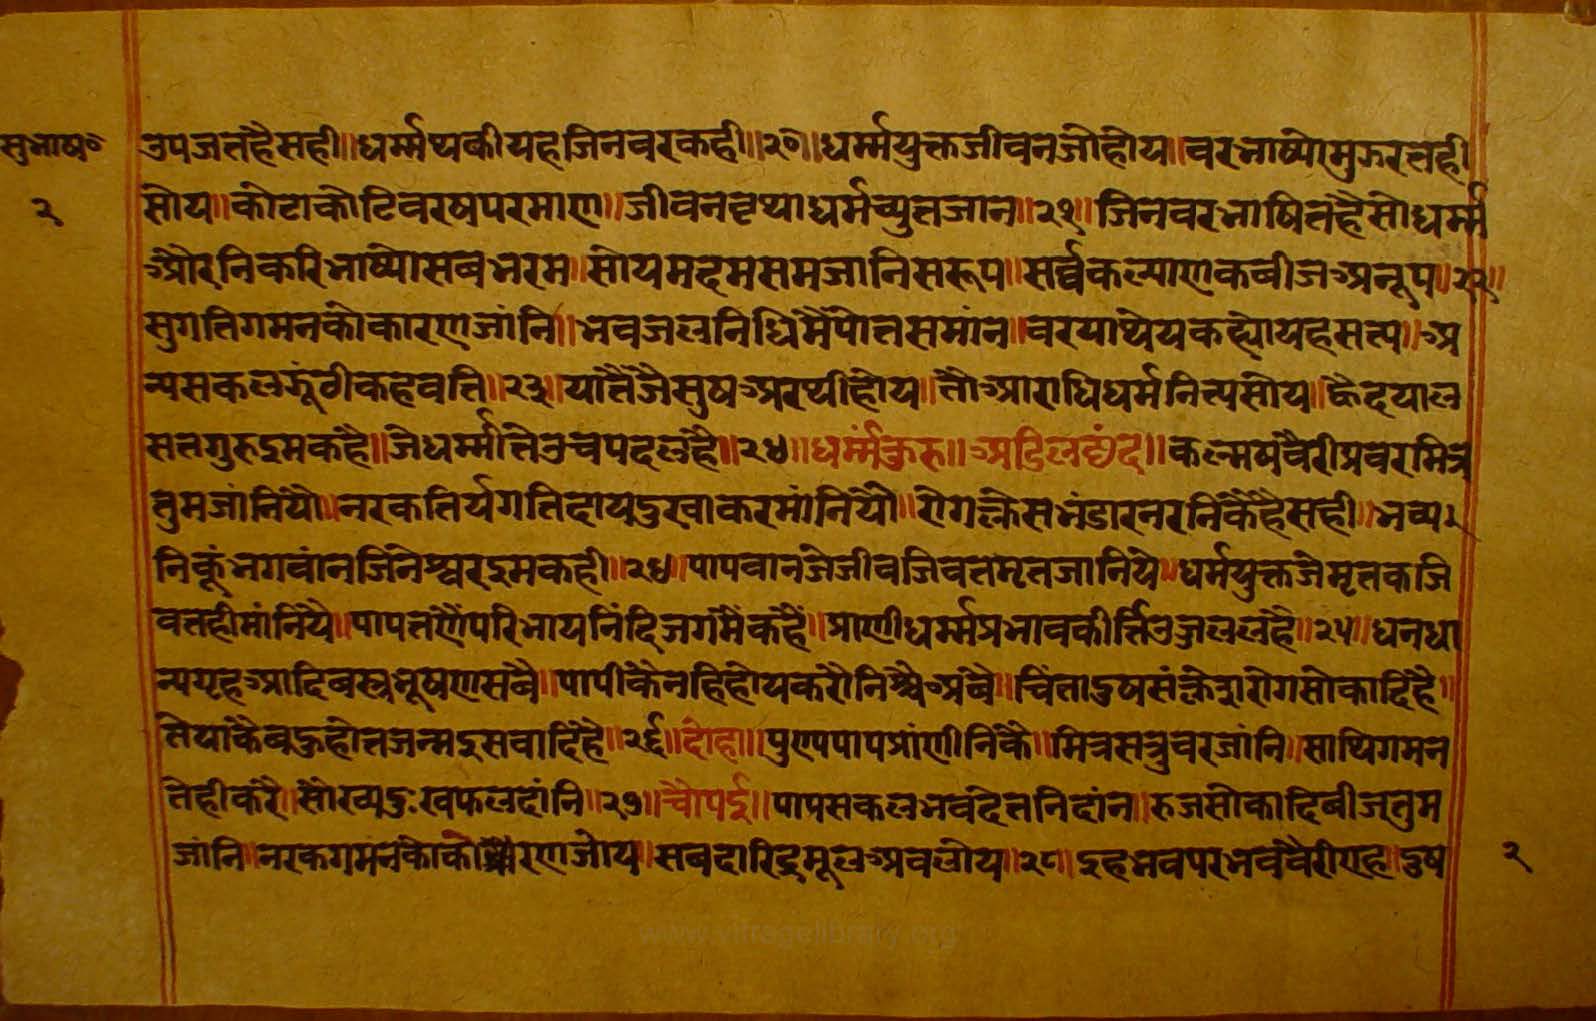 सुभाष०
२
उपजतहैसही॥धर्म्मपथकीयहजिनवरकही॥२०॥धर्म्मयुक्तजीवनजोहोय॥वरभाष्योमुऊरतही
सोय॥कोटाकोटिवरषपरमाण॥जीवनवृथाधर्मच्युतजान॥२१॥जिनवरभाषितहैसोधर्म्म
औरनिकरिभाष्योसबभरम॥सोयमदमसमजानिसरूप॥सर्व्वकल्याणकबीजअनूप॥२२॥
सुगतिगमनकौकारणजांनि॥भवजलनिधिमैंपोतसमांन॥वरयाथेयकह्योयहसत्य॥अ
न्यसकलझूंठीकहवति॥२३॥यातैंजैसुषअरथीहोय॥तौआराधिधर्मनित्यसोय॥ह्वैदयाल
सतगुरुइमकहै॥जेधर्म्मीतेउचपदलहै॥२४॥धर्म्मंकुरु॥अडिलछंद॥कल्मषवैरीप्रवरमित्र
तुमजांनियौ॥नरकतिर्यगतिदायदुखाकरमांनियौ॥रोगक्लेसभंडारनरनिकैंहैसही॥भव्य
निकूंभगवांनजिनेश्वरइमकही॥२४॥पापवानजेजीवजिवतमृतजानिये॥धर्मयुक्तजेमृतकजि
वतहीमांनियै॥पापतणैंपरिभायनिंदिजगमैंकहैं॥प्राणीधर्म्मप्रभावकीर्त्तिउजललहै॥२५॥धनधा
न्यगृहआदिवस्त्रभूषणसबै॥पापीकैनहिहोयकरौनिश्चैअबै॥चिंतादुषसंक्लेशरोगसोकादिहै॥
तेयाकैबहुहोतजन्मदुसवादिहै॥२६॥दोहा॥पुण्यपापप्रांणीनिकै॥मित्रसत्रुवरजांनि॥साथिगमन
तेहीकरै॥सौख्यदुःखफलदांनि॥२७॥चौपई॥पापसकलभवदेतनिदांन॥रुजसोकादिबीजतुम
जांनि॥नरकगमनकोकारणजोय॥सबदारिद्रमूलअवलोय॥२८॥इहभवपरभववैरीएह॥दुष
२